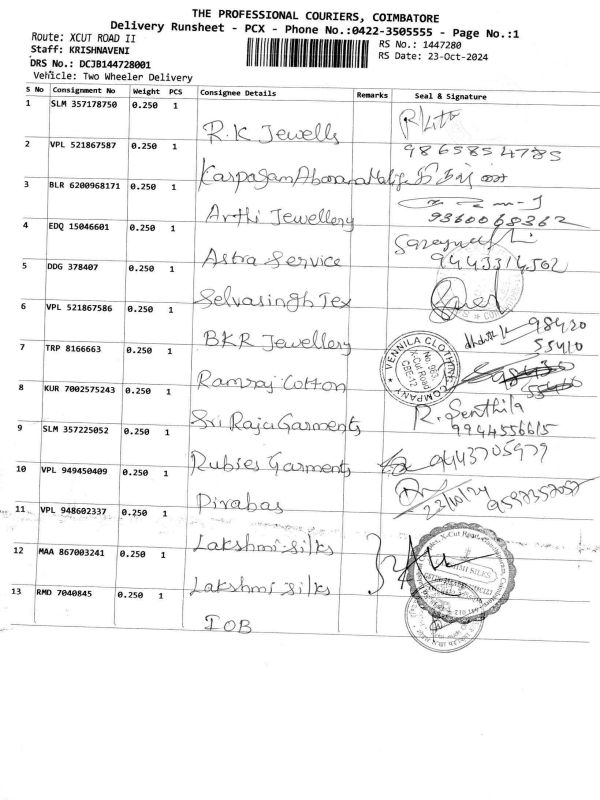 THE PROFESSIONAL COURIERS, COIMBATORE
Delivery Runsheet - PCX - Phone No.:0422-3505555 - Page No.:1
Route: XCUT ROAD II
RS No.: 1447280
Staff: KRISHNAVENI
RS Date: 23-Oct-2024
DRS No.: DCJB144728001
Vehicle: Two Wheeler Delivery
S No Consignment No Weight PCS Consignee Details Remarks Seal & Signature
1 SLM 357178750 0.250 1
R.K Jewells
9865854785
2 VPL 521867587 0.250 1
Karpagam Abarana Maligai
3 BLR 6200968171 0.250 1
Arthi Jewellery
9360068362
4 EDQ 15046601 0.250 1
Astra Service
9443314502
5 DDG 378407 0.250 1
Selvasingh Tex
6 VPL 521867586 0.250 1
BKR Jewellery
98420
55410
7 TRP 8166663 0.250 1
Ramraj Cotton
VENNILA CLOTHING COMPANY
X-Cut Road
CBE-12
8 KUR 7002575243 0.250 1
Sri Raju Garments
R. Senthila
9944556615
9 SLM 357225052 0.250 1
Rubies Garments
9443705979
10 VPL 949450409 0.250 1
Dirabas
23/10/24
11 VPL 948602337 0.250 1
Lakshmi Silks
12 MAA 867003241 0.250 1
Lakshmi Silks
13 RMD 7040845 0.250 1
IOB